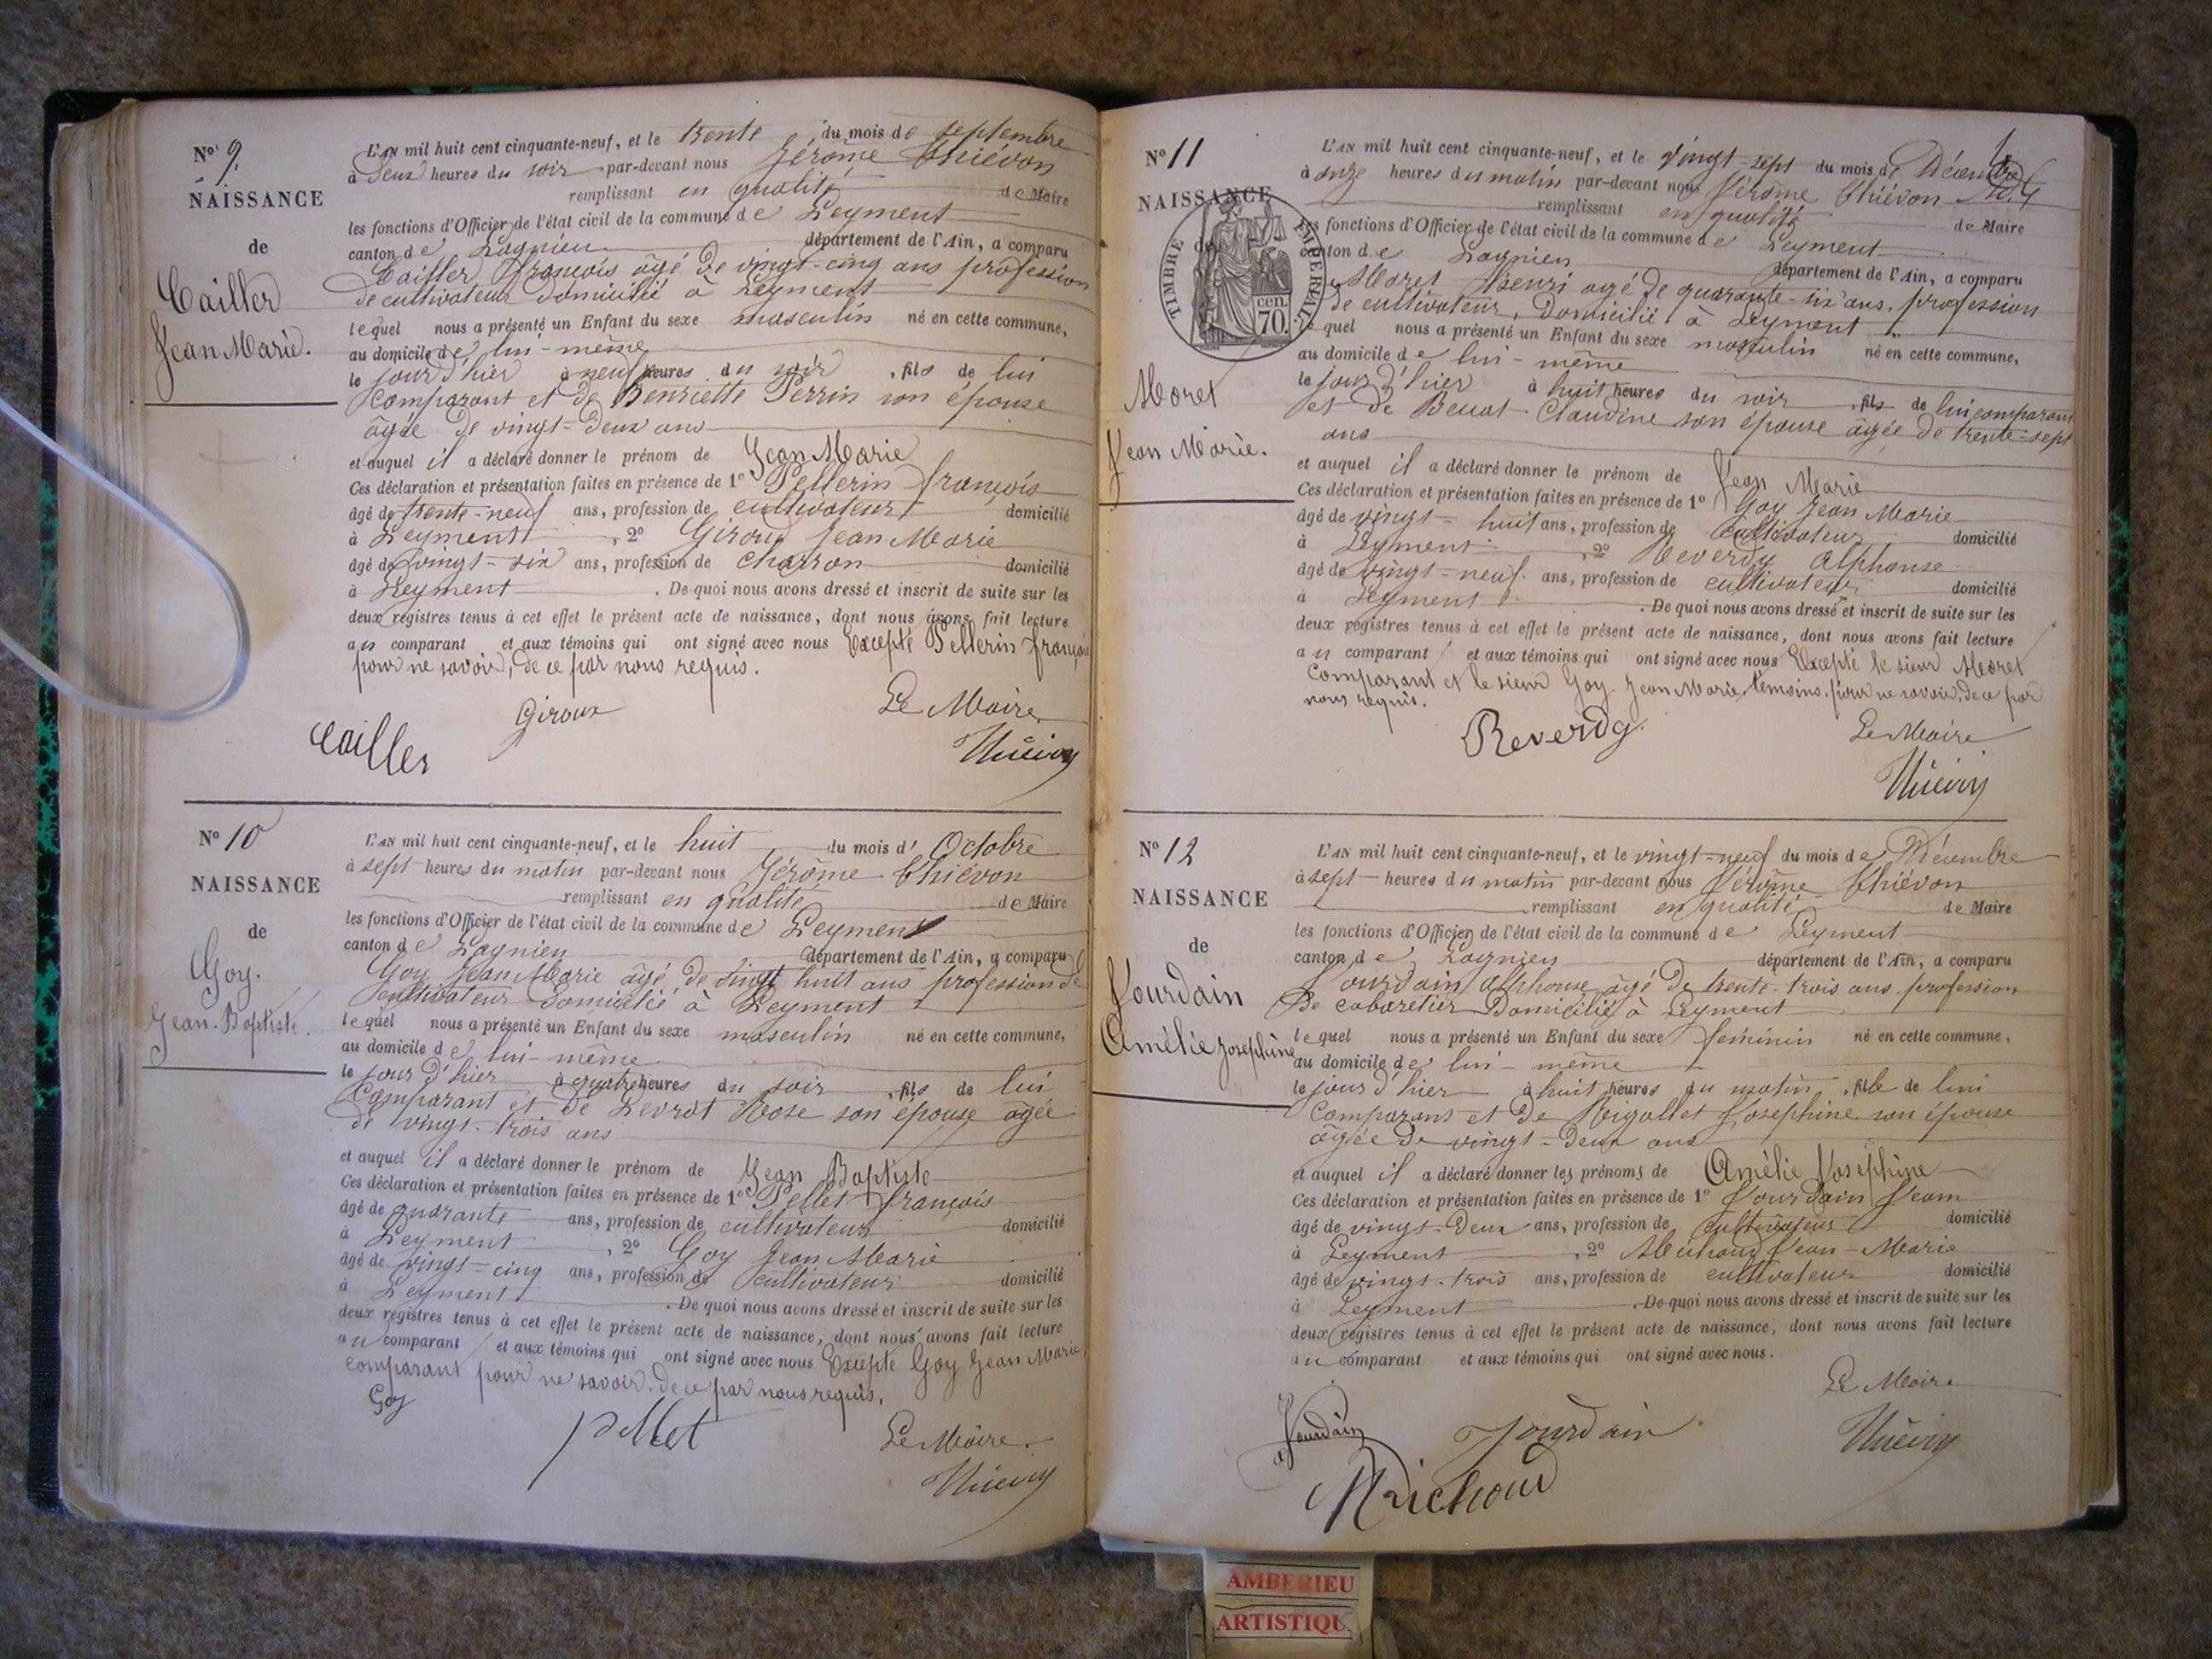 N° 9.
NAISSANCE
de
Cailler
Jean Marie.
L'AN mil huit cent cinquante-neuf, et le trente du mois de septembre
à Deux heures du soir par-devant nous Jérôme Thiévon
remplissant en qualité de Maire
les fonctions d'Officier de l'état civil de la commune de Leyment
canton de Lagnieu département de l'Ain, a comparu
Cailler François âgé de vingt-cinq ans profession
de cultivateur domicilié à Leyment
lequel nous a présenté un Enfant du sexe masculin né en cette commune,
au domicile de lui-même
le jour d'hier à neuf heures du soir, fils de lui
comparant et de Henriette Perrin son épouse
âgée de vingt-deux ans
et auquel il a déclaré donner le prénom de Jean Marie
Ces déclaration et présentation faites en présence de 1° Pellerin françois
âgé de trente-neuf ans, profession de cultivateur domicilié
à Leyment, 2° Giroud Jean Marie
âgé de vingt-six ans, profession de charron domicilié
à Leyment. De quoi nous avons dressé et inscrit de suite sur les
deux registres tenus à cet effet le présent acte de naissance, dont nous avons fait lecture
au comparant et aux témoins qui ont signé avec nous Excepté Pellerin françois
pour ne savoir, de ce par nous requis.
Giroux Le Maire
Cailler
N° 10
NAISSANCE
de
Goy.
Jean-Baptiste.
L'AN mil huit cent cinquante-neuf, et le huit du mois d' Octobre
à sept heures du matin par-devant nous Jérôme Thiévon
remplissant en qualité de Maire
les fonctions d'Officier de l'état civil de la commune de Leyment
canton de Lagnieu département de l'Ain, a comparu
Goy Jean Marie âgé de vingt huit ans profession de
cultivateur domicilié à Leyment
lequel nous a présenté un Enfant du sexe masculin né en cette commune,
au domicile de lui-même
le jour d'hier à quatre heures du soir, fils de lui
comparant et de Levrat Rose son épouse âgée
de vingt-trois ans
et auquel il a déclaré donner le prénom de Jean Baptiste
Ces déclaration et présentation faites en présence de 1° Pellet françois
âgé de quarante ans, profession de cultivateur domicilié
à Leyment, 2° Goy Jean Marie
âgé de vingt-cinq ans, profession de cultivateur domicilié
à Leyment. De quoi nous avons dressé et inscrit de suite sur les
deux registres tenus à cet effet le présent acte de naissance, dont nous avons fait lecture
au comparant et aux témoins qui ont signé avec nous Excepté Goy Jean Marie,
comparant pour ne savoir, de ce par nous requis.
Goy
pellet Le Maire.
N° 11
NAISSANCE
de
TIMBRE IMPERIAL
70. cen.
Moret
Jean Marie.
L'AN mil huit cent cinquante-neuf, et le vingt-sept du mois de Décembre
à onze heures du matin par-devant nous Jérôme Thiévon
remplissant en qualité de Maire
les fonctions d'Officier de l'état civil de la commune de Leyment
canton de Lagnieu département de l'Ain, a comparu
Moret Henri âgé de quarante-six ans, profession
de cultivateur, domicilié à Leyment
lequel nous a présenté un Enfant du sexe masculin né en cette commune,
au domicile de lui-même
le jour d'hier à huit heures du soir, fils de lui comparant
et de Claudine son épouse âgée de trente-sept
ans
et auquel il a déclaré donner le prénom de Jean Marie
Ces déclaration et présentation faites en présence de 1° Goy Jean Marie
âgé de vingt-huit ans, profession de cultivateur domicilié
à Leyment, 2° Reverdy Alphonse
âgé de vingt-neuf ans, profession de cultivateur domicilié
à Leyment. De quoi nous avons dressé et inscrit de suite sur les
deux registres tenus à cet effet le présent acte de naissance, dont nous avons fait lecture
au comparant et aux témoins qui ont signé avec nous Excepté le sieur Moret
comparant et le sieur Goy Jean Marie, témoins, pour ne savoir, de ce par
nous requis.
Reverdy. Le Maire
N° 12
NAISSANCE
de
Jourdain
Amélie Josephine
L'AN mil huit cent cinquante-neuf, et le vingt-neuf du mois de Décembre
à sept heures du matin par-devant nous Jérôme Thiévon
remplissant en qualité de Maire
les fonctions d'Officier de l'état civil de la commune de Leyment
canton de Lagnieu département de l'Ain, a comparu
Jourdain Alphonse âgé de trente-trois ans profession
de cabaretier domicilié à Leyment
lequel nous a présenté un Enfant du sexe féminin né en cette commune,
au domicile de lui-même
le jour d'hier à huit heures du matin, fille de lui
comparant et de Rigollet Josephine son épouse
âgée de vingt-deux ans
et auquel il a déclaré donner les prénoms de Amélie Josephine
Ces déclaration et présentation faites en présence de 1° Jourdain Jean
âgé de vingt-deux ans, profession de cultivateur domicilié
à Leyment, 2° Michoud Jean-Marie
âgé de vingt-trois ans, profession de cultivateur domicilié
à Leyment. De quoi nous avons dressé et inscrit de suite sur les
deux registres tenus à cet effet le présent acte de naissance, dont nous avons fait lecture
au comparant et aux témoins qui ont signé avec nous.
Le Maire
Jourdain Jourdain
Michoud
AMBERIEU
ARTISTIQU